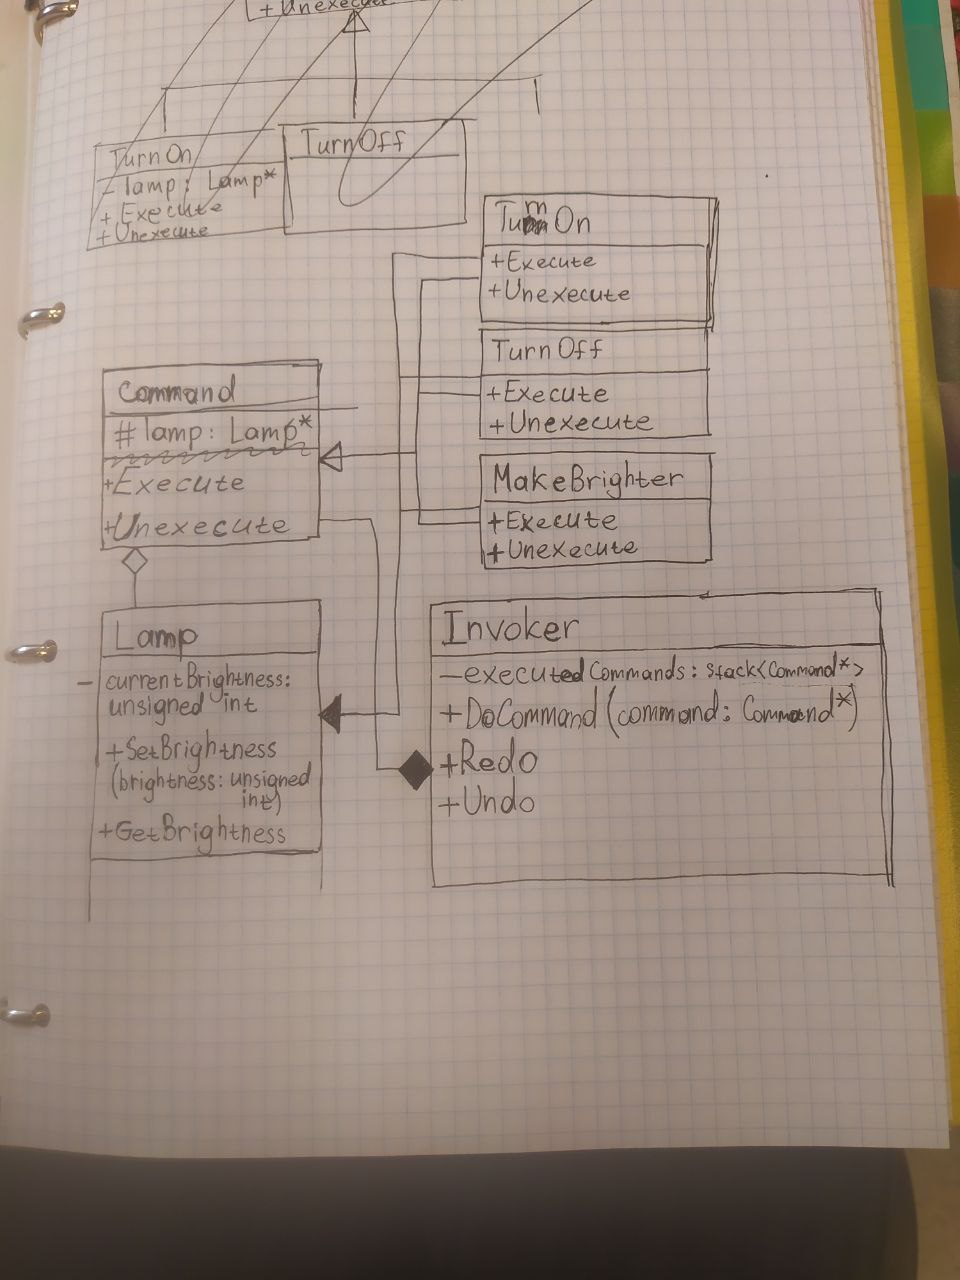 + Unexecute
TurnOn
- lamp: Lamp*
+ Execute
+ Unexecute
TurnOff
TurnOn
+Execute
+Unexecute
TurnOff
+Execute
+Unexecute
MakeBrighter
+Execute
+Unexecute
Command
# lamp: Lamp*
+Execute
+Unexecute
Lamp
- currentBrightness:
unsigned int
+SetBrightness
(brightness: unsigned
int)
+GetBrightness
Invoker
-executedCommands: stack<Command*>
+DoCommand (command: Command*)
+Redo
+Undo